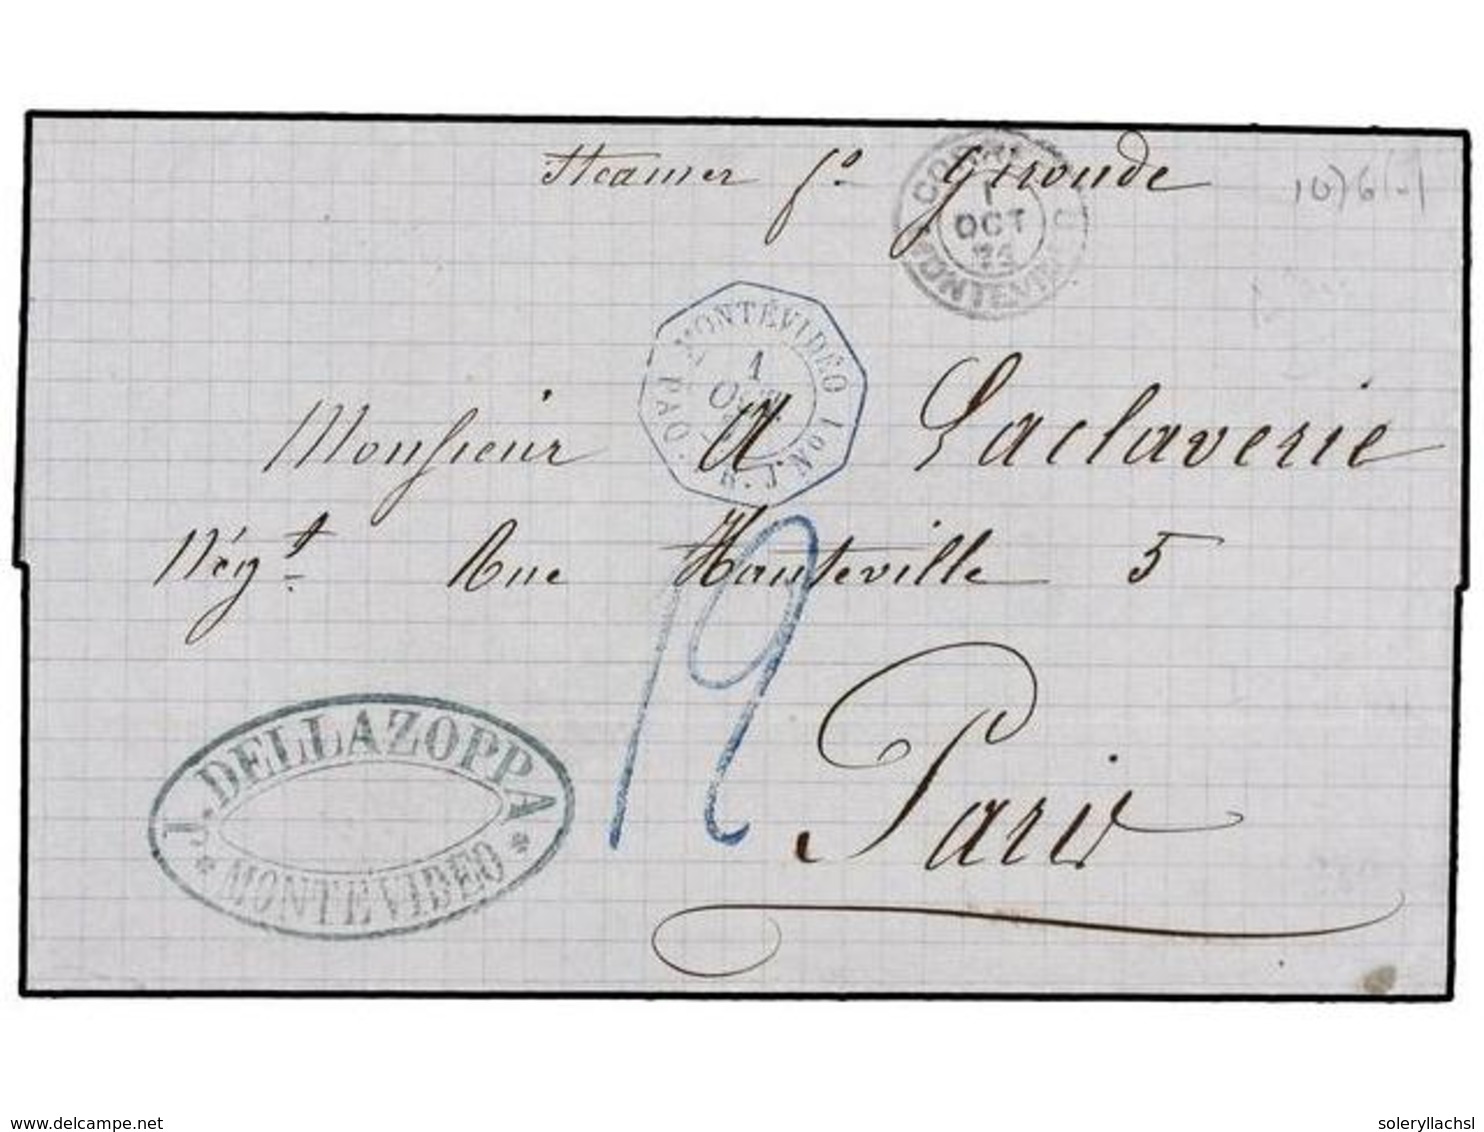 Steamer fs. Gironde
1
OCT
MONTEVIDEO
MONTÉVIDÉO
1
PAQ. J. No 1
Monsieur A Laclaverie
Négt. Rue Hauteville 5
12
Paris
J. DELLAZOPPA
* MONTEVIDEO *
www.delcampe.net
soleryllachsl